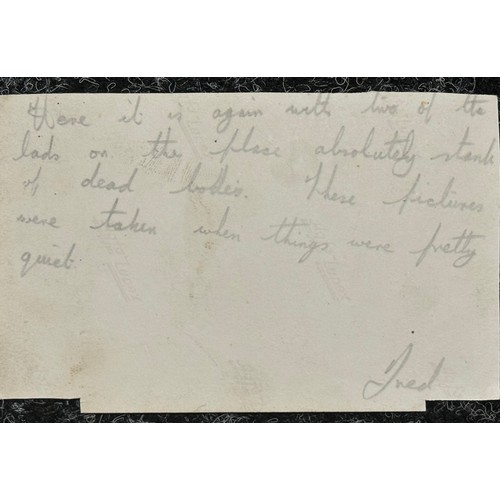 Here it is again with two of the
lads on. the place absolutely stank
of dead bodies. These pictures
were taken when things were pretty
quiet.
Fred